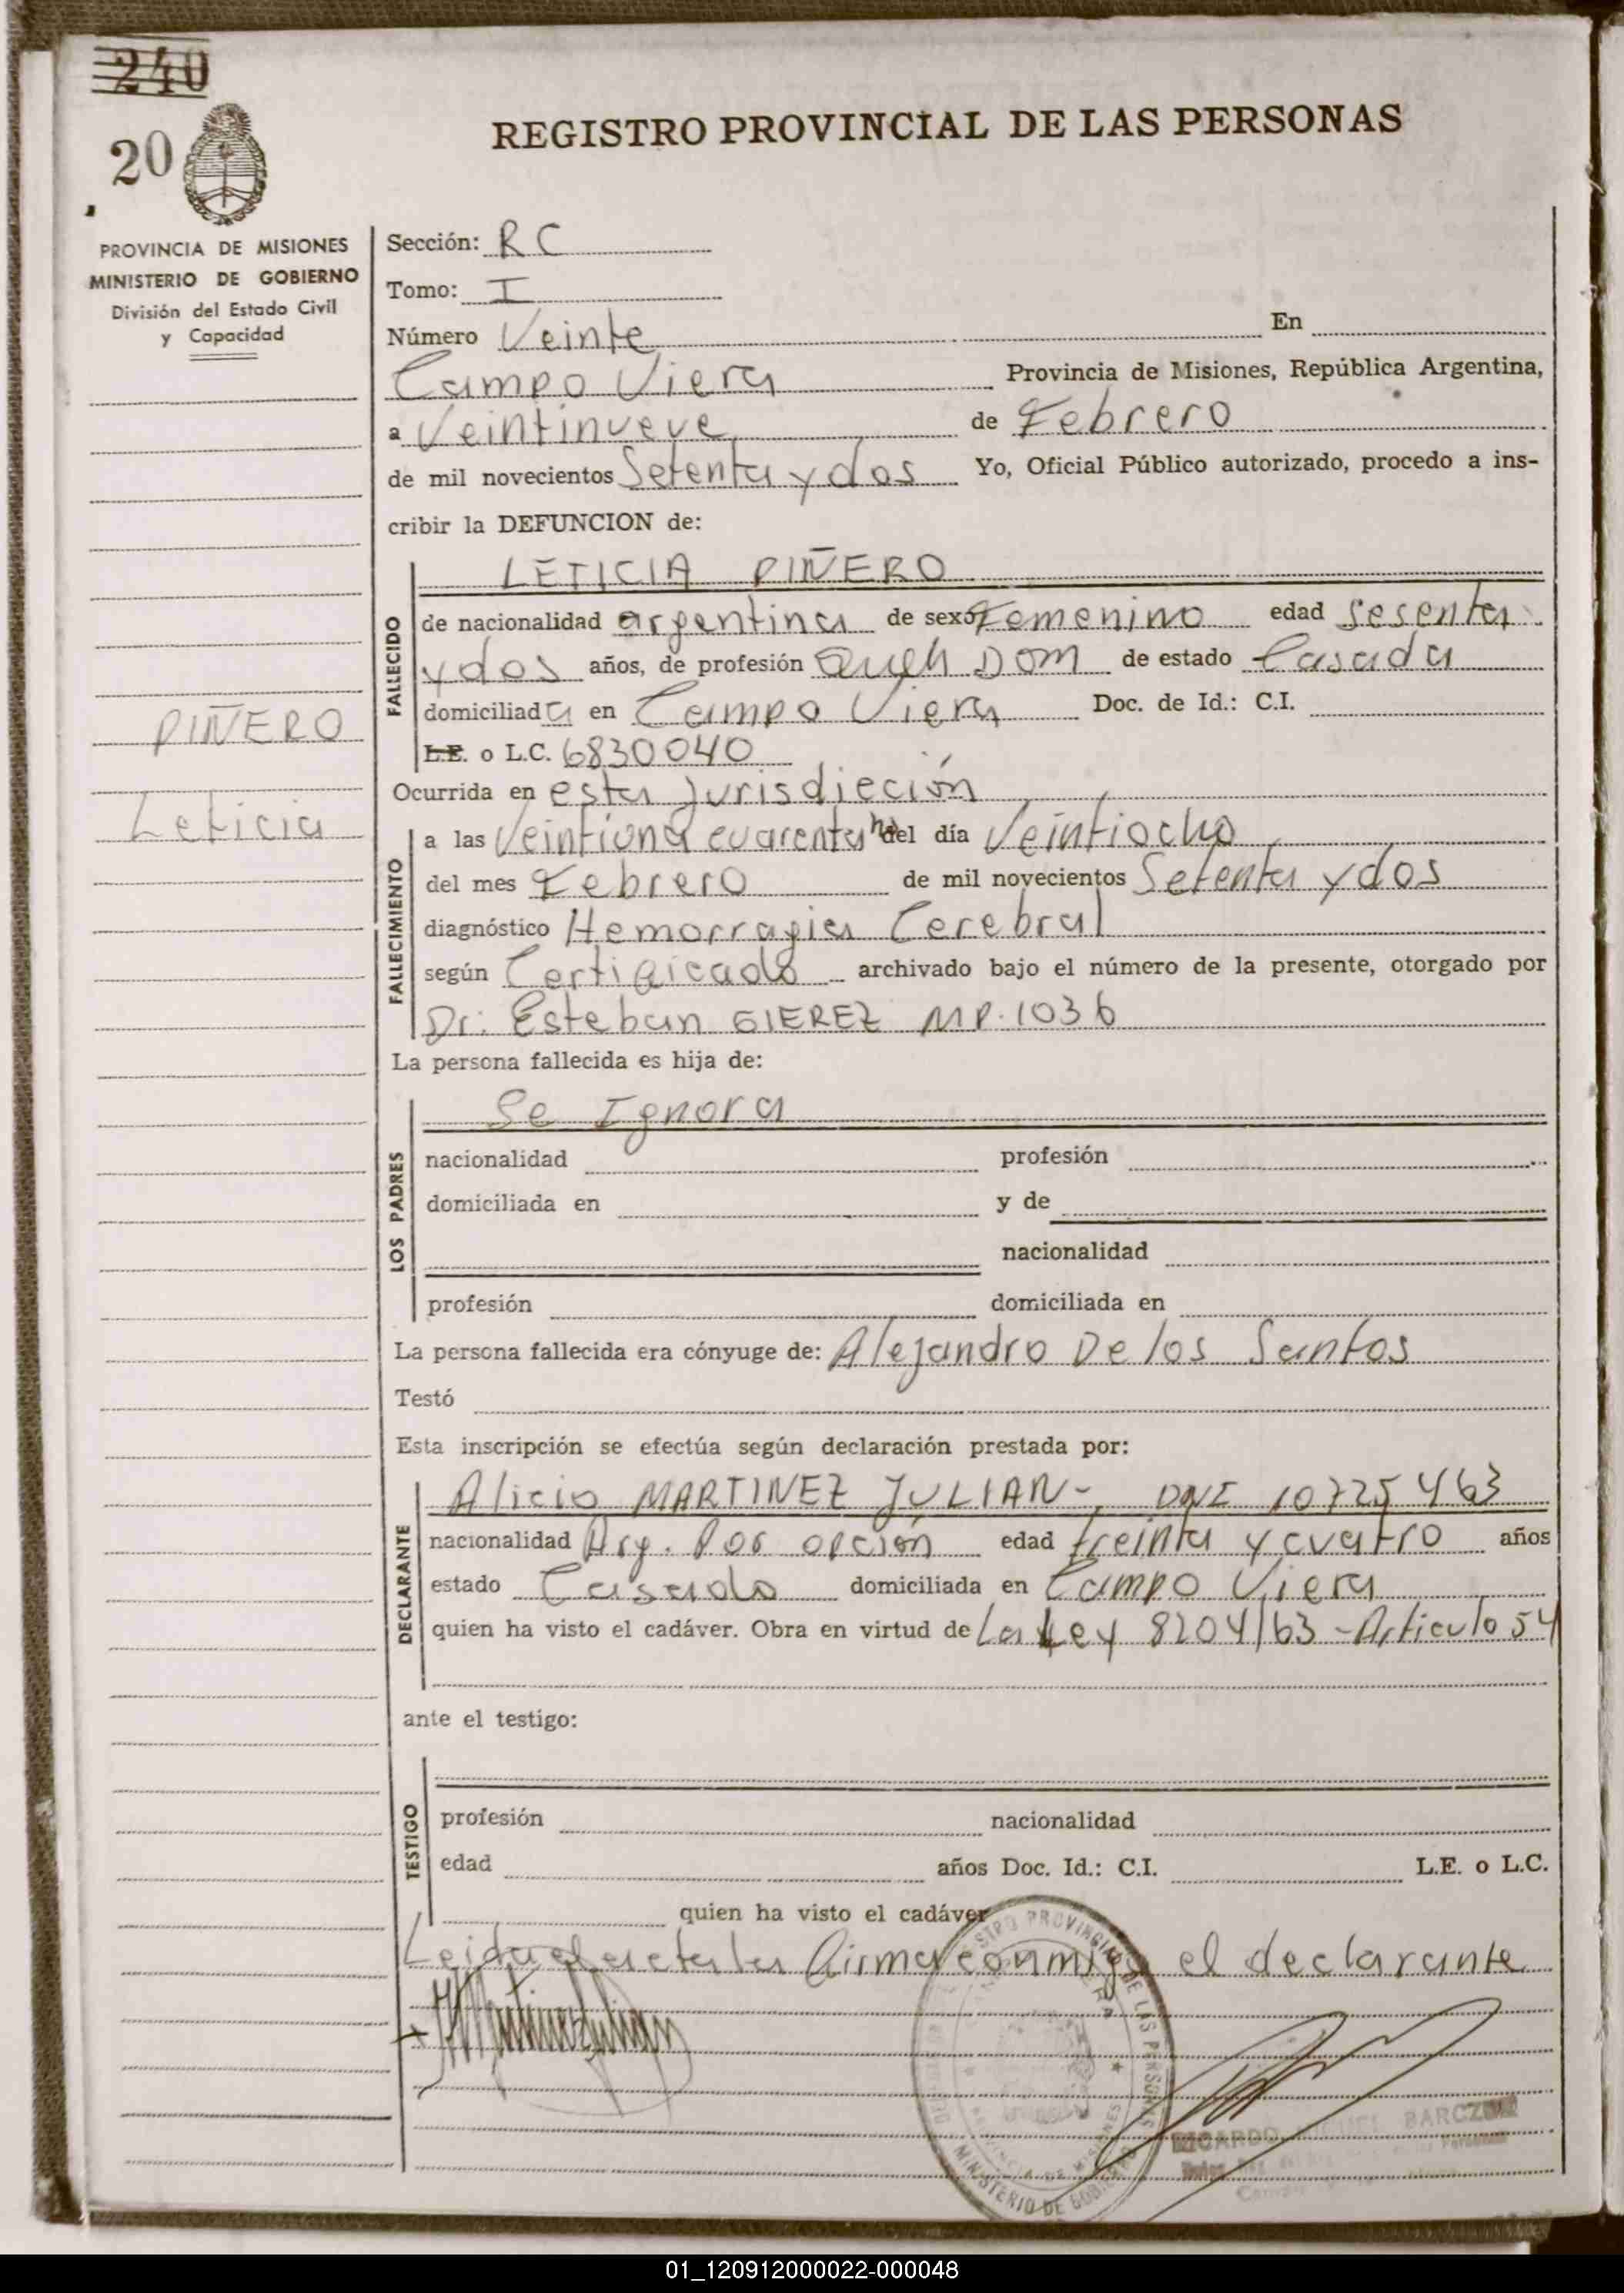 240
20
REGISTRO PROVINCIAL DE LAS PERSONAS
PROVINCIA DE MISIONES
MINISTERIO DE GOBIERNO
División del Estado Civil
y Capacidad
PIÑERO
Leticia
Sección: RC
Tomo: I
Número Veinte En
Campo Viera Provincia de Misiones, República Argentina,
a Veintinueve de Febrero
de mil novecientos Setenta y dos Yo, Oficial Público autorizado, procedo a ins-
cribir la DEFUNCION de:
LETICIA PIÑERO
FALLECIDO
de nacionalidad argentina de sexo Femenino edad sesenta
y dos años, de profesión Queh Dom de estado Casada
domiciliada en Campo Viera Doc. de Id.: C.I.
L.E. o L.C. 6830040
Ocurrida en esta Jurisdicción
FALLECIMIENTO
a las Veintiuna cuarenta hs del día Veintiocho
del mes Febrero de mil novecientos Setenta y dos
diagnóstico Hemorragia Cerebral
según Certificado archivado bajo el número de la presente, otorgado por
Dr. Esteban GIEREZ MP. 1036
La persona fallecida es hija de:
LOS PADRES
Se Ignora
nacionalidad profesión
domiciliada en y de
nacionalidad
profesión domiciliada en
La persona fallecida era cónyuge de: Alejandro De los Santos
Testó
Esta inscripción se efectúa según declaración prestada por:
DECLARANTE
Alicio MARTINEZ JULIAN-, DNI 10725463
nacionalidad Arg. Por opción edad treinta y cuatro años
estado Casado domiciliada en Campo Viera
quien ha visto el cadáver. Obra en virtud de La Ley 8204/63 - Articulo 54
ante el testigo:
TESTIGO
profesión nacionalidad
edad años Doc. Id.: C.I. L.E. o L.C.
quien ha visto el cadáver
Leida el acta la firma conmigo el declarante
REGISTRO PROVINCIAL DE LAS PERSONAS
MINISTERIO DE GOBIERNO
PROVINCIA DE MISIONES
RICARDO MIGUEL
01_120912000022-000048